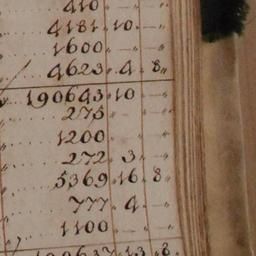 410 " — "
4181 " 10 " — "
1600 " — " — "
4623 " 4 " 8 "
190643 " 10 " — "
275 " — " — "
1200 " — " — "
272 " 3 " — "
5369 " 16 " 8 "
777 " 4 " — "
1100 " — " — "